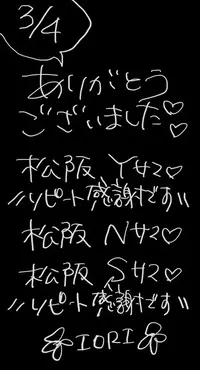 3/4
ありがとう
ございました♡♡
松阪 Yサマ♡
〃リピート感謝です〃
松阪 Nサマ♡
松阪 Sサマ♡
〃リピート感謝です〃
IORI